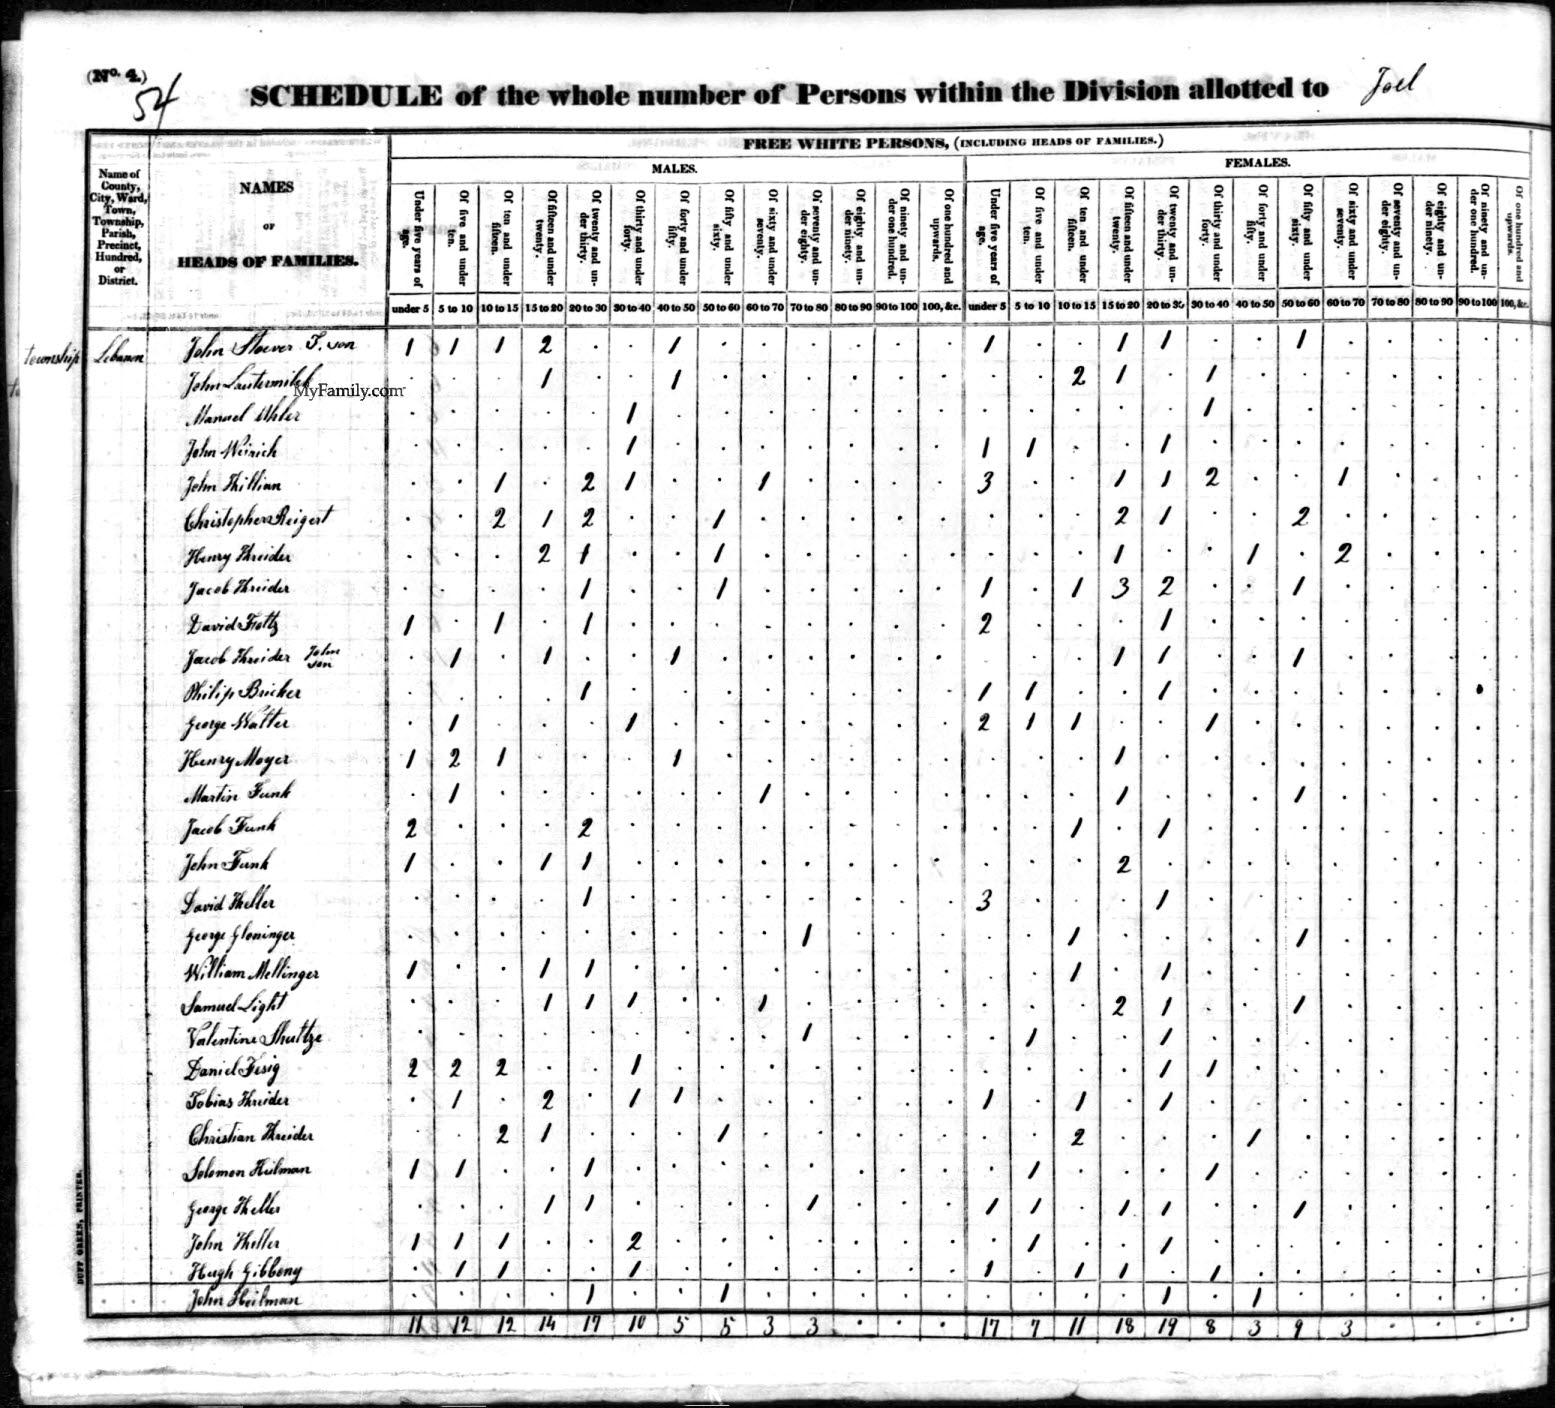 (No. 4.)
54
SCHEDULE of the whole number of Persons within the Division allotted to Joel
FREE WHITE PERSONS, (INCLUDING HEADS OF FAMILIES.)
MALES. FEMALES.
Name of County, City, Ward, Town, Township, Parish, Precinct, Hundred, or District.
NAMES OF HEADS OF FAMILIES.
Under five years of age. Of five and under ten. Of ten and under fifteen. Of fifteen and under twenty. Of twenty and under thirty. Of thirty and under forty. Of forty and under fifty. Of fifty and under sixty. Of sixty and under seventy. Of seventy and under eighty. Of eighty and under ninety. Of ninety and under one hundred. Of one hundred and upwards. Under five years of age. Of five and under ten. Of ten and under fifteen. Of fifteen and under twenty. Of twenty and under thirty. Of thirty and under forty. Of forty and under fifty. Of fifty and under sixty. Of sixty and under seventy. Of seventy and under eighty. Of eighty and under ninety. Of ninety and under one hundred. Of one hundred and upwards.
under 5 5 to 10 10 to 15 15 to 20 20 to 30 30 to 40 40 to 50 50 to 60 60 to 70 70 to 80 80 to 90 90 to 100 100, &c. under 5 5 to 10 10 to 15 15 to 20 20 to 30 30 to 40 40 to 50 50 to 60 60 to 70 70 to 80 80 to 90 90 to 100 100, &c.
township Lebanon John Stoever F. son 1 1 1 2 · · 1 · · · · · · 1 · · 1 1 · · 1 · · · · ·
John Lautermilch · · · 1 · · 1 · · · · · · · · 2 1 · 1 · · · · · · ·
MyFamily.com
Manuel Uhler · · · · · 1 · · · · · · · · · · · · 1 · · · · · · ·
John Weirich · · · · · 1 · · · · · · · 1 1 · · 1 · · · · · · · ·
John Killian · · 1 · 2 1 · · 1 · · · · 3 · · 1 1 2 · · 1 · · · ·
Christopher Reigert · · 2 1 2 · · 1 · · · · · · · · 2 1 · · 2 · · · · ·
Henry Kreider · · · 2 1 · · 1 · · · · · · · · 1 · · 1 · 2 · · · ·
Jacob Kreider · · · · 1 · · 1 · · · · · 1 · 1 3 2 · · 1 · · · · ·
David Foltz 1 · 1 · 1 · · · · · · · · 2 · · · 1 · · · · · · · ·
Jacob Kreider John son · 1 · 1 · · 1 · · · · · · · · · 1 1 · · 1 · · · · ·
Philip Bricker · · · · 1 · · · · · · · · 1 1 · · 1 · · · · · · · ·
George Walter · 1 · · · 1 · · · · · · · 2 1 1 · · 1 · · · · · · ·
Henry Moyer 1 2 1 · · · 1 · · · · · · · · · 1 · · · · · · · · ·
Martin Funk · 1 · · · · · · 1 · · · · · · · 1 · · · 1 · · · · ·
Jacob Funk 2 · · · 2 · · · · · · · · · · 1 · 1 · · · · · · · ·
John Funk 1 · · 1 1 · · · · · · · · · · · 2 · · · · · · · · ·
David Keller · · · · 1 · · · · · · · · 3 · · · 1 · · · · · · · ·
George Gloninger · · · · · · · · · 1 · · · · · 1 · · · · 1 · · · · ·
William Mellinger 1 · · 1 1 · · · · · · · · · · 1 · 1 · · · · · · · ·
Samuel Light · · · 1 1 1 · · 1 · · · · · · · 2 1 · · 1 · · · · ·
Valentine Shultze · · · · · · · · · 1 · · · · 1 · · 1 · · · · · · · ·
Daniel Fisig 2 2 2 · · 1 · · · · · · · · · · · 1 1 · · · · · · ·
Tobias Kreider · 1 · 2 · 1 1 · · · · · · 1 · 1 · 1 · · · · · · · ·
Christian Kreider · · 2 1 · · · 1 · · · · · · · 2 · · · 1 · · · · · ·
Solomon Heilman 1 1 · · 1 · · · · · · · · · 1 · · · 1 · · · · · · ·
George Keller · · · 1 1 · · · · 1 · · · 1 1 · 1 1 · · 1 · · · · ·
John Keller 1 1 1 · · 2 · · · · · · · · 1 · · 1 · · · · · · · ·
Hugh Gibbony · 1 1 · · 1 · · · · · · · 1 · 1 1 · 1 · · · · · · ·
John Heilman · · · · 1 · · 1 · · · · · · · · · 1 · 1 · · · · · ·
11 12 12 14 17 10 5 5 3 3 · · · 17 7 11 18 19 8 3 9 3 · · · ·
DUFF GREEN, PRINTER.